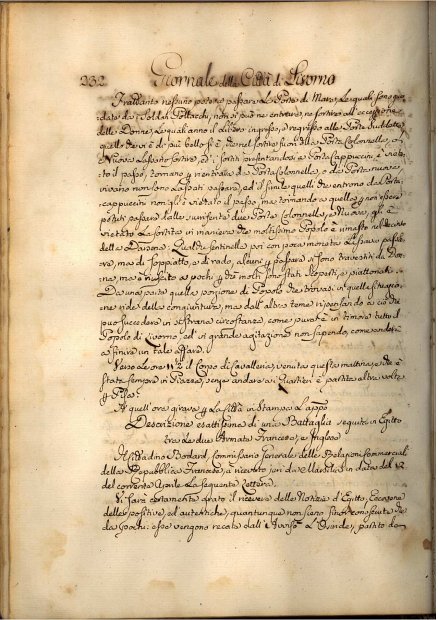 232 Giornale della Città di Livorno
Frattanto nessuno poteva passare le Porte di Mare, le quali sono guar
date da i Soldati Pollacchi, non si può ne entrare, ne sortire ad eccezione
delle Donne, le quali anno il libero ingresso, e regresso alle Porte suddette
quello che vi è di più bello si è, che nel sortire fuori della Porta Colonnella, o
Nuova lasciano sortire, ed i sortiti presentandosi a Porta Cappuccini è vieta
to il passo, tornano per rientrare da Porta Colonnella, o da Porta nuova,
vivano non sono lasciati passare, ed il simile quelli che entrono da Porta
cappuccini non gli è vietato il passo, ma tornando a quella per non essere
potuti passare dalle summentovate due Porte Colonnella, e Nuova, gli è
vietato la sortita in maniera che moltissimo Popolo è rimasto nel recinto
della Dogana. Qualche sentinella poi con poca moneta lasciava passa
re, ma di soppiatto, e di rado, alcuni per passare si sono travestiti da Don
na, ma è riuscito a pochi per che molti sono stati scoperti, e piattonati.
Da una parte quella porzione di Popolo che trovasi in quella situazio
ne ride della congiuntura, ma dall'altra teme ripensando a ciò che
può succedere in sì strana circostanza, come pure è in timore tutto il
Popolo di Livorno, ed in grande agitazione non sapendo, come anderà
a finire un tale affare.
Verso le ore 11 1/2 il Corpo di Cavalleria, venuta questa mattina, e che è
stata sempre in Piazza, senza andare ai Quartieri è partita altra volta
per Pisa.
A quell'ora girava per la Città in stampa l'app.
Descrizione esattissima di una Battaglia seguita in Egitto
tra le due Armate Francese, e Inglese
Il Cittadino Bodard, Commissario Generale delle Relazioni Commerciali
della Repubblica Francese, à ricevuto jeri da Marsilia in data del 12
del corrente Aprile la seguente Lettera.
Vi sarà certamente grato il ricevere delle Notizie d'Egitto, Eccovene
delle positive, ed autentiche, quantunque non sieno finora conosciute che
da pochi: esse vengono recate dall'Avviso L'Osiride, partito da